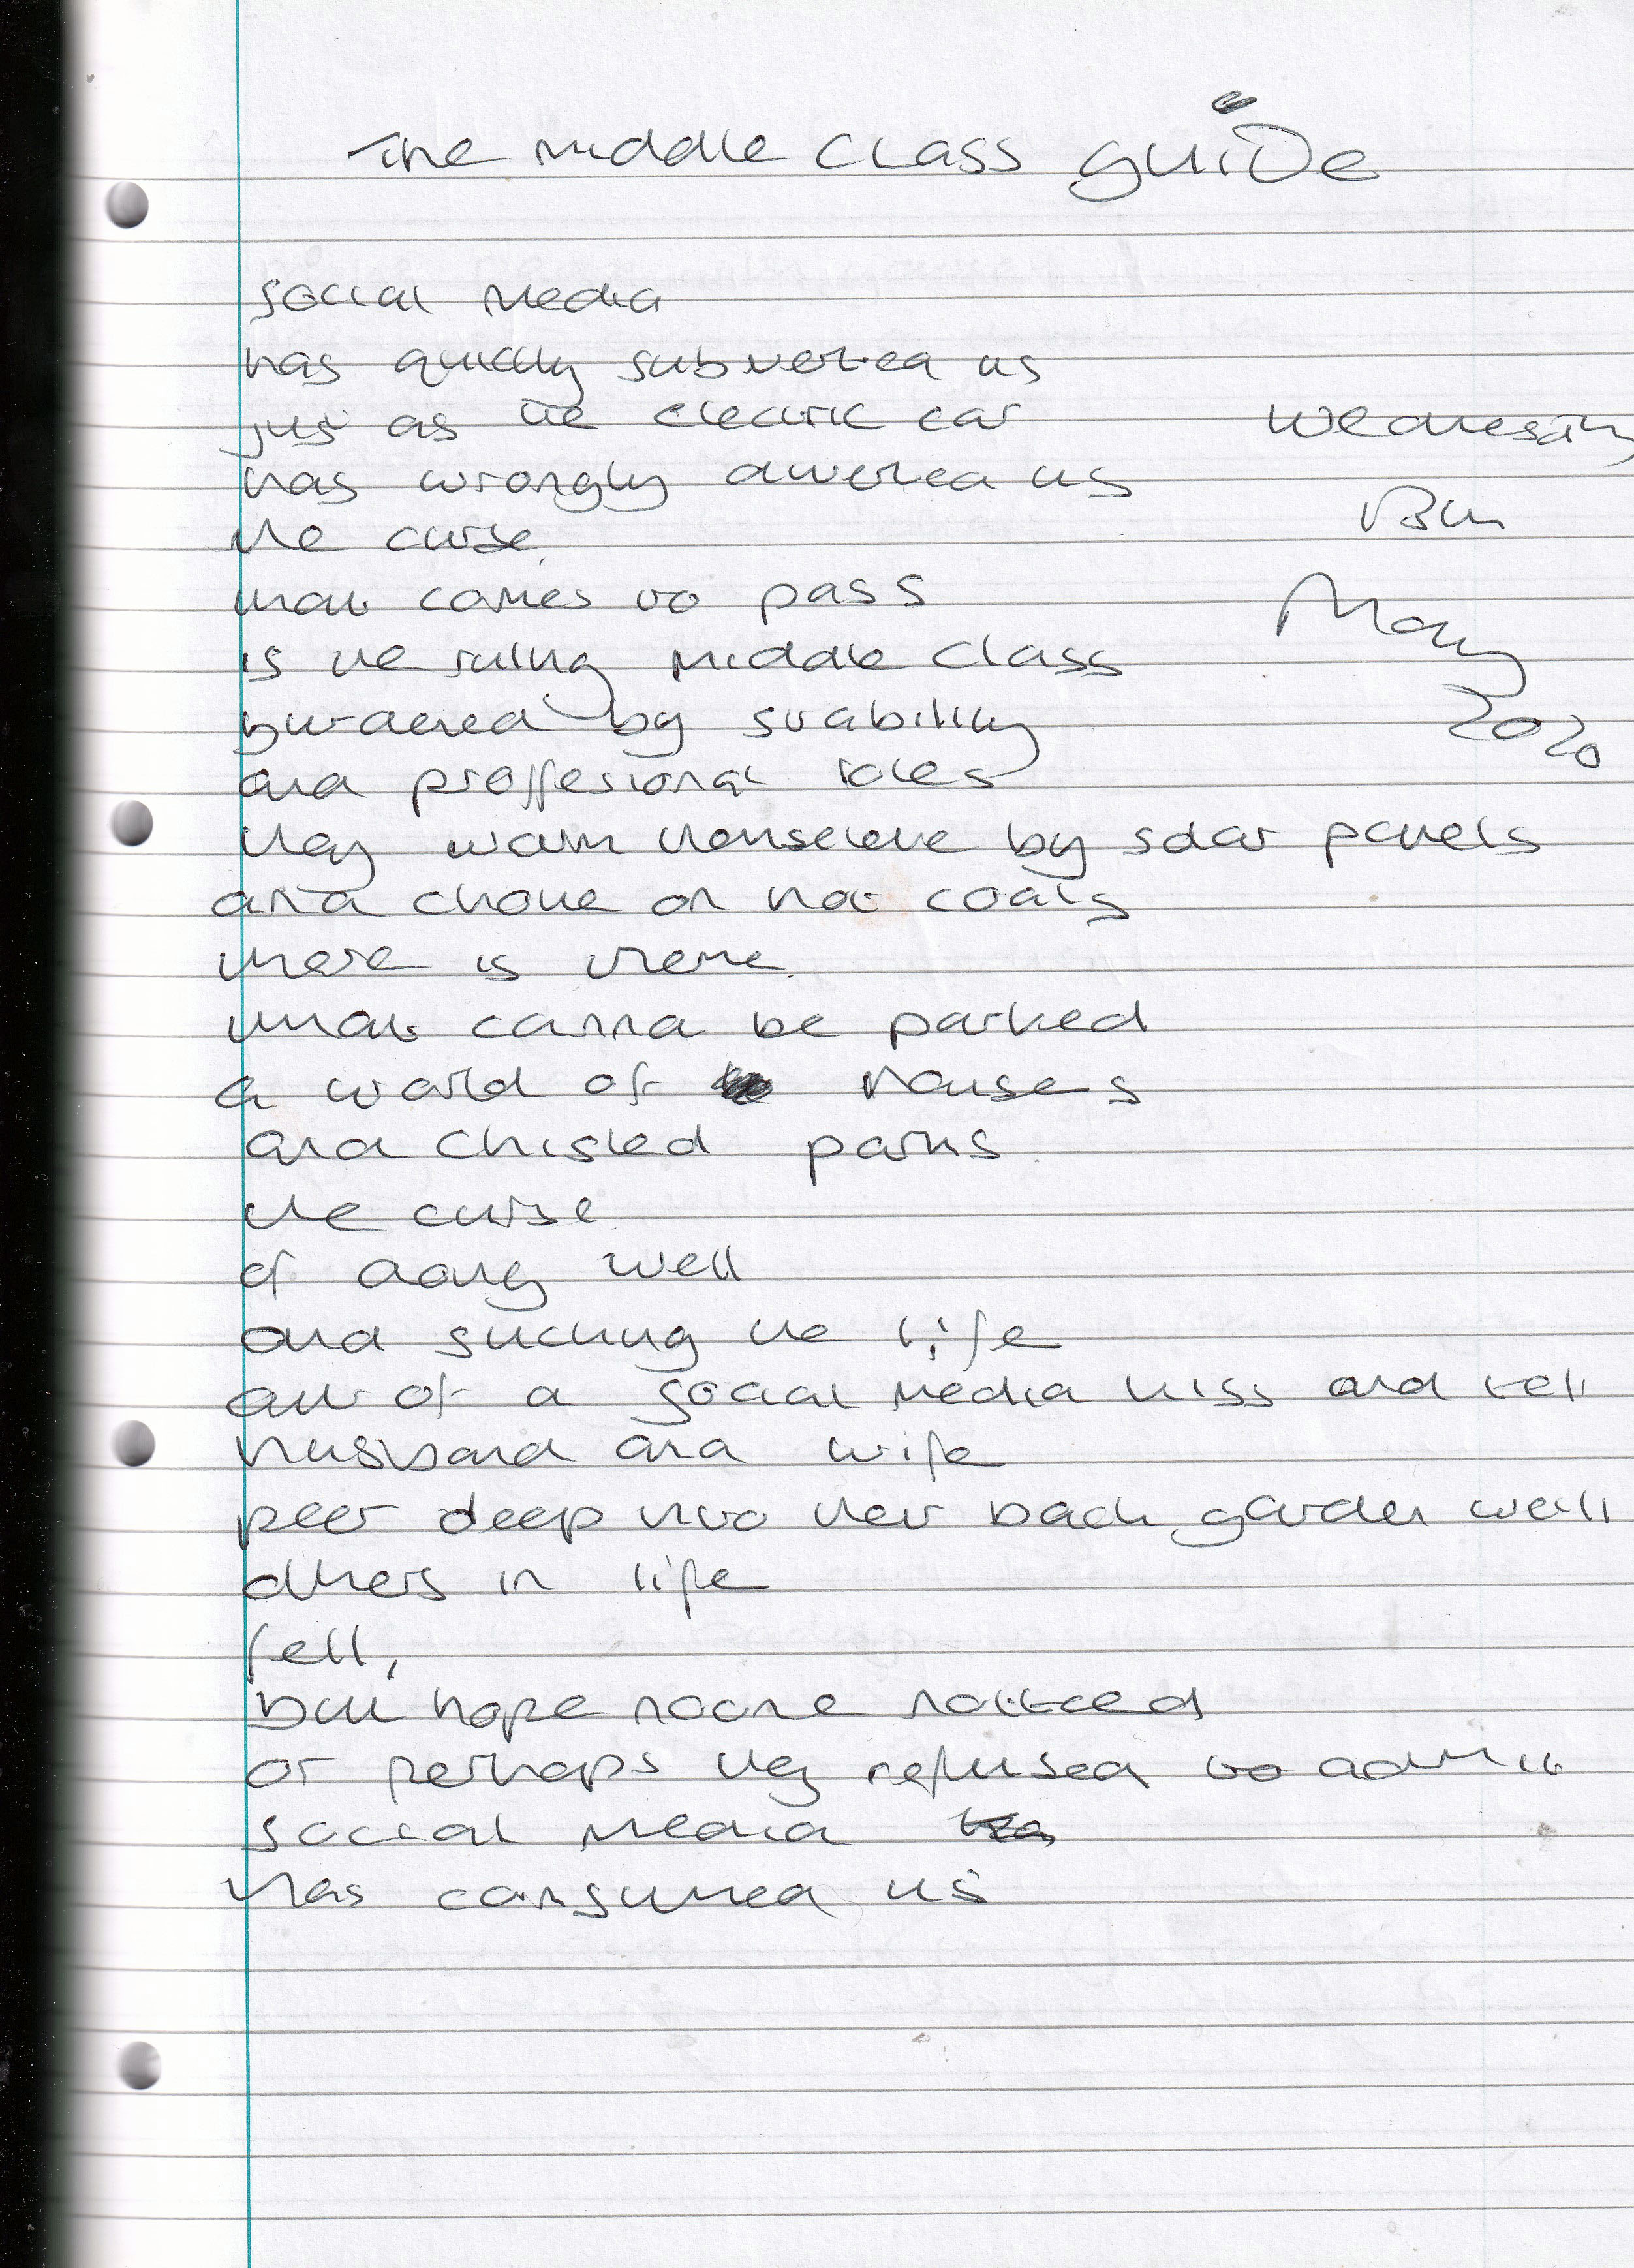 The middle class guide
social media
has quickly subverted us
just as the electric car
has wrongly diverted us
Wednesday
the curse
13th
that comes to pass
May
is the ruling middle class
2020
by stability
and proffesional roles
they warm themselves by solar panels
and choke on hot coals
there is
that canna be parked
a world of houses
and chisled parks
the curse
of doing well
and sucking the life
out of a social media kiss and tell
husband and wife
peer deep into their back garden well
others in life
fell,
but hope noone noticed
or perhaps they refused to admit
social media
has consumed us